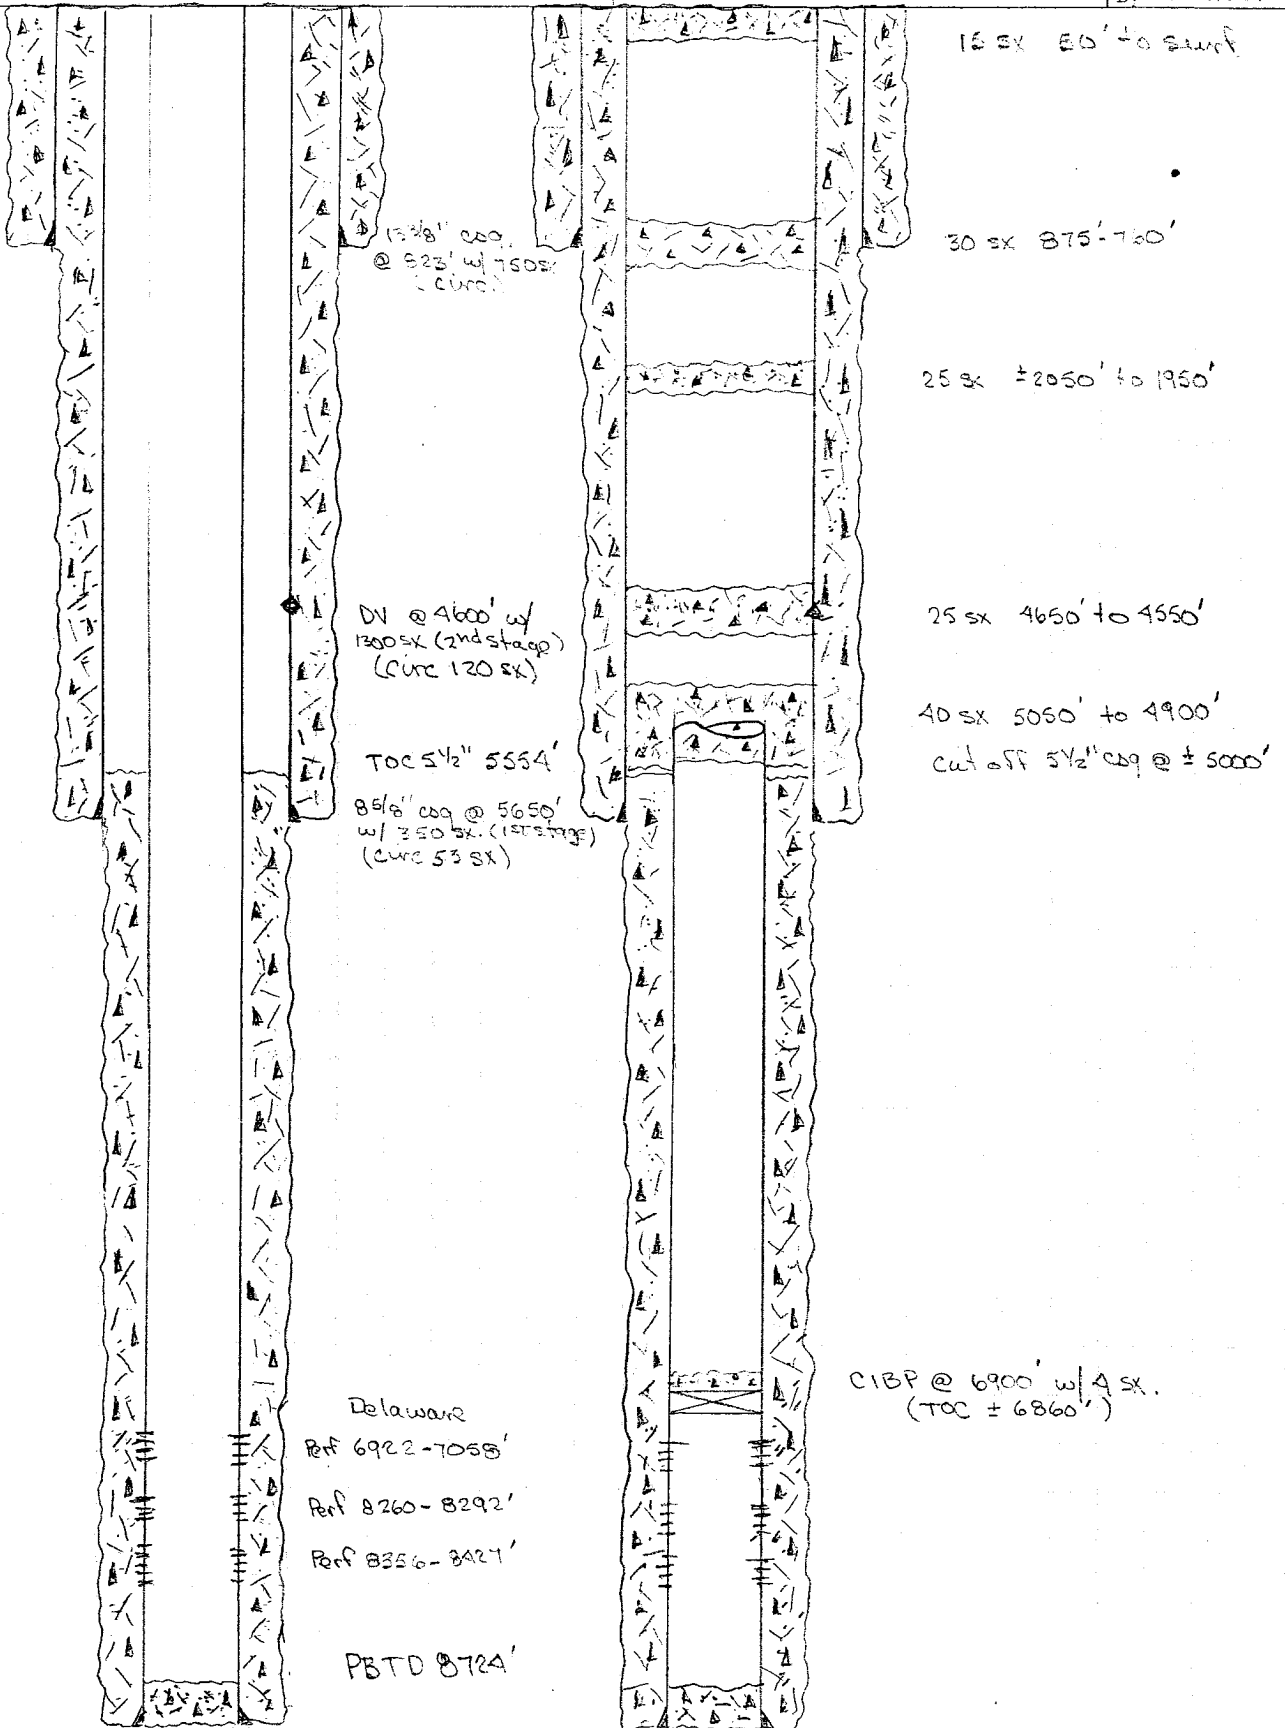 15 sx 50' to surf
13 3/8" csg
@ 823' w/ 750 sx
(circ.)
30 sx 875'-760'
25 sx ±2050' to 1950'
DV @ 4600' w/
1300 sx (2nd stage)
(circ 120 sx)
25 sx 4650' to 4550'
40 sx 5050' to 4900'
cut off 5½" csg @ ± 5000'
TOC 5½" 5554'
8 5/8" csg @ 5650'
w/ 350 sx. (1st stage)
(circ 53 sx)
CIBP @ 6900' w/ 4 sx.
(TOC ± 6860')
Delaware
Perf 6922-7058'
Perf 8260-8292'
Perf 8356-8427'
PBTD 8724'